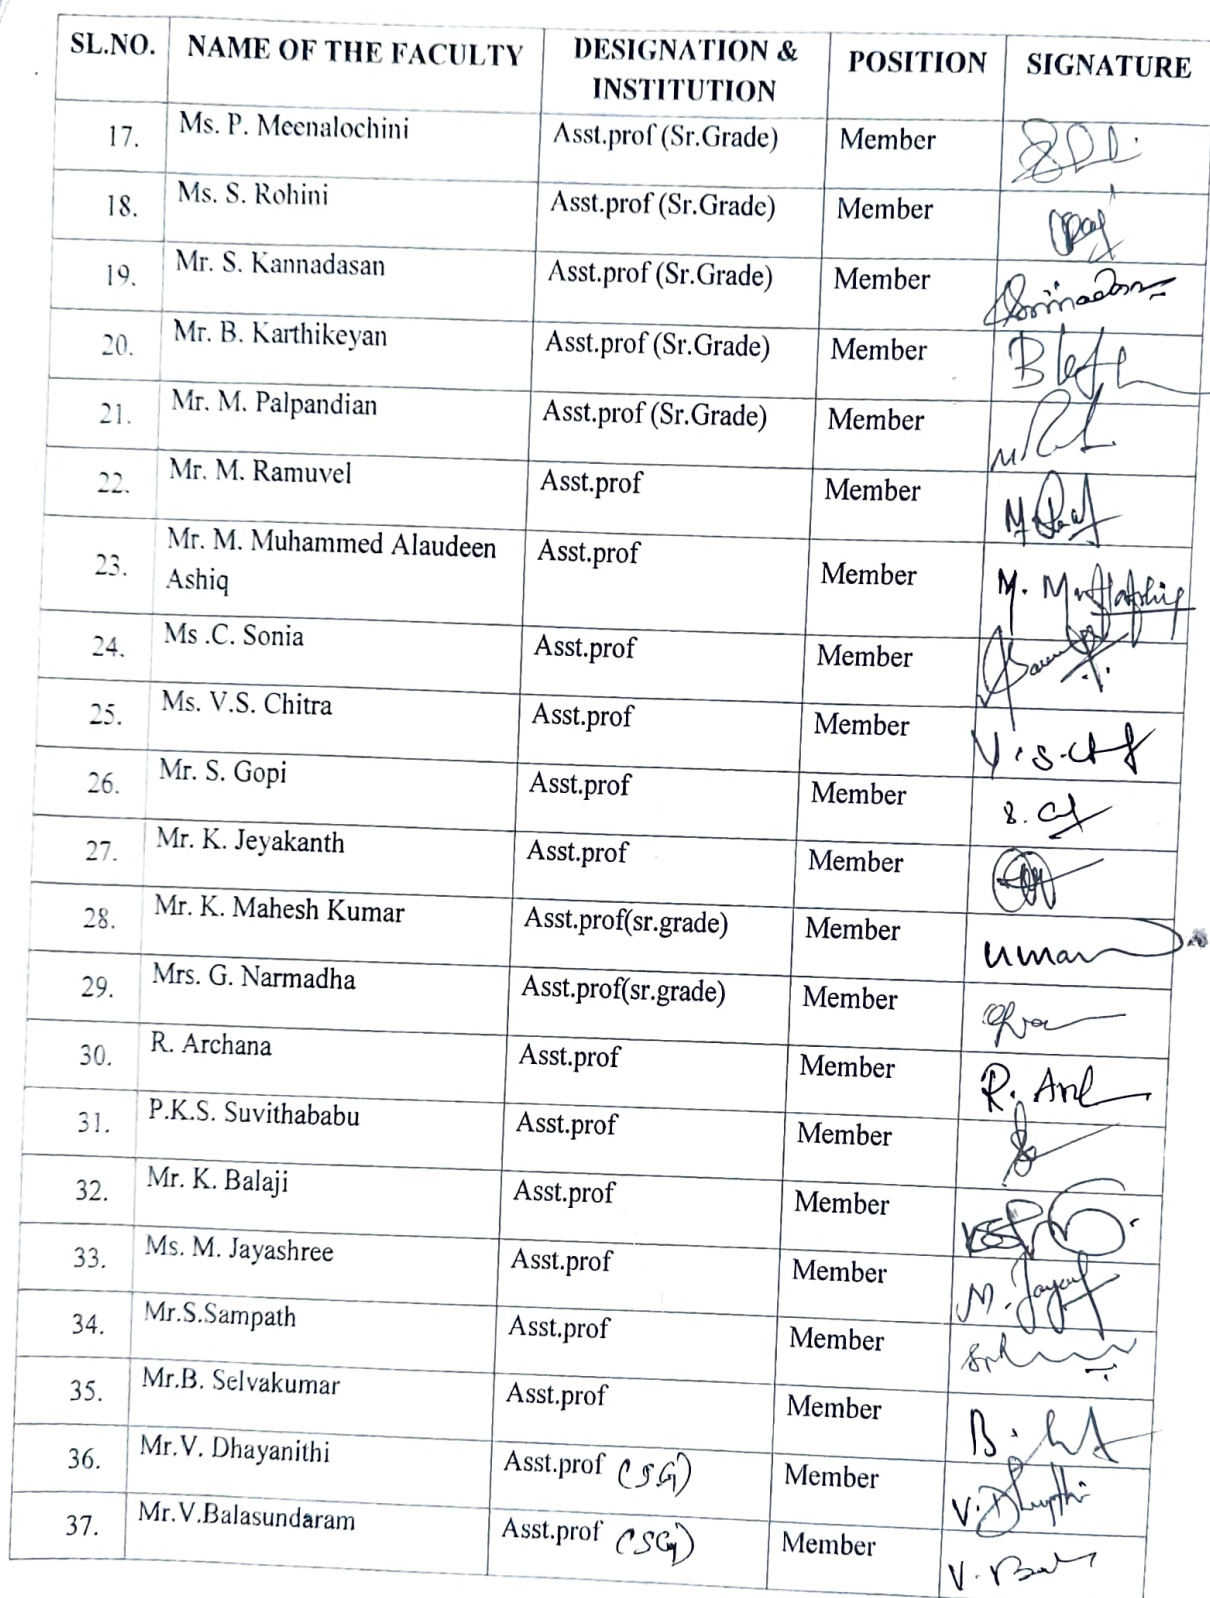 SL.NO. NAME OF THE FACULTY DESIGNATION & INSTITUTION POSITION SIGNATURE
17. Ms. P. Meenalochini Asst.prof (Sr.Grade) Member
18. Ms. S. Rohini Asst.prof (Sr.Grade) Member
19. Mr. S. Kannadasan Asst.prof (Sr.Grade) Member
20. Mr. B. Karthikeyan Asst.prof (Sr.Grade) Member
21. Mr. M. Palpandian Asst.prof (Sr.Grade) Member
22. Mr. M. Ramuvel Asst.prof Member
23. Mr. M. Muhammed Alaudeen Asst.prof Member
Ashiq
24. Ms .C. Sonia Asst.prof Member
25. Ms. V.S. Chitra Asst.prof Member
26. Mr. S. Gopi Asst.prof Member
27. Mr. K. Jeyakanth Asst.prof Member
28. Mr. K. Mahesh Kumar Asst.prof(sr.grade) Member
29. Mrs. G. Narmadha Asst.prof(sr.grade) Member
30. R. Archana Asst.prof Member
31. P.K.S. Suvithababu Asst.prof Member
32. Mr. K. Balaji Asst.prof Member
33. Ms. M. Jayashree Asst.prof Member
34. Mr.S.Sampath Asst.prof Member
35. Mr.B. Selvakumar Asst.prof Member
36. Mr.V. Dhayanithi Asst.prof (SG) Member
37. Mr.V.Balasundaram Asst.prof (SG) Member